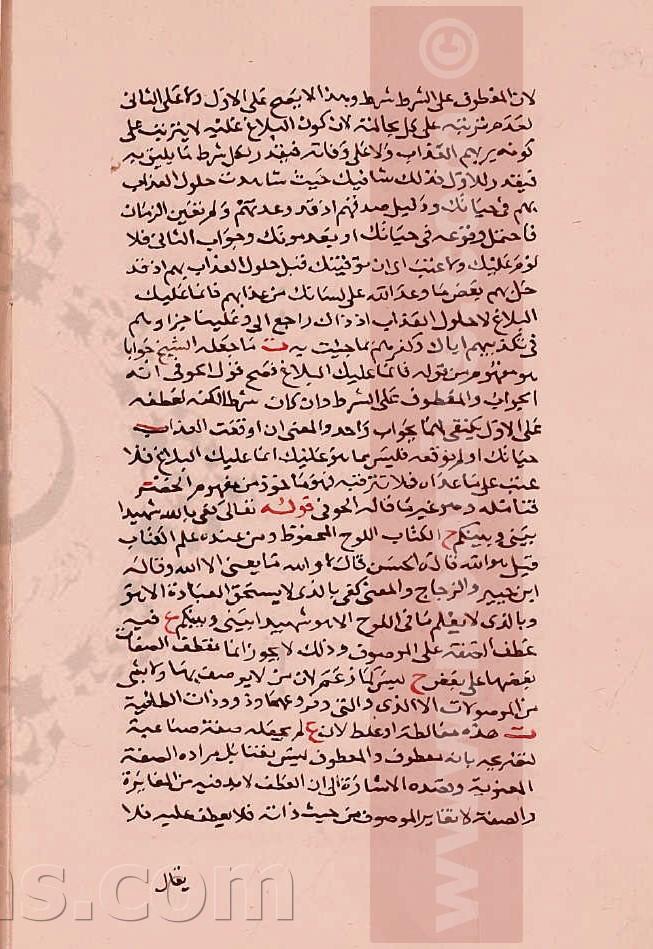 لان المعطوف على الشرط شرط وبهذا لا يصح على الاول ولا على الثانى
لعدم ترتبه على كل بحالته لان كون البلاغ عليه لا يترتب على
كونه يريهم العذاب ولا على وفاته فيقدر لكل شرط ما يليق به
فيقدر للاول فذلك شافيك حيث شاهدت حلول العذاب
بهم فى حياتك ودليل صدقهم اذ قد وعدتهم ولم نعين الزمان
فاحتمل وقوعه فى حياتك او بعد موتك وجواب الثانى فلا
لوم عليك ولا عتب اى ان توفيتك قبل حلول العذاب بهم اذ قد
حل بهم بعض ما وعد الله على لسانك من عذابهم فانما عليك
البلاغ لا حلول العذاب اذ ذاك راجع الى وعلينا جزاوهم
فى تكذيبهم اياك وكفرهم بما جئت به ت ما جعله الشيخ جوابا
هو مفهوم من قوله فانما عليك البلاغ فصح قول الحوفى انه
الجواب والمعطوف على الشرط وان كان شرطا لكنه لعطفه
على الاول يكتفى لهما بجواب واحد والمعنى ان اوقعت العذاب
حياتك او لم نوقعه فليس مما هو عليك انما عليك البلاغ فلا
عتب على ما عداه فلا تترقبه فهو ماخوذ من مفهوم الحصر
فتامله وهو غير ما قاله الحوفى قوله تعالى كفى بالله شهيدا
بينى وبينكم ح الكتاب اللوح المحفوظ ومن عنده علم الكتاب
قيل هو الله قاله الحسن قال لا والله ما يعنى الا الله وقاله
ابن جبير والزجاج والمعنى كفى بالذى لا يستحق العبادة الا هو
وبالذى لا يعلم ما فى اللوح الا هو شهيدا بينى وبينكم ع فيه
عطف الصفة على الموصوف وذلك لا يجوز انما تعطف الصفات
بعضها على بعض ح ليس كما زعم لان من لا يوصف بها ولا بشى
من الموصولات الا الذى والتى وفروعهما وذو وذات الطائية
ت هذه مغالطة او غلط لان ع لم يجعله صفة صناعية
لتصريحه بانه معطوف والمعطوف ليس بنعت بل مراده الصفة
المعنوية وقصده الاشارة الى ان العطف لا بد فيه من المغايرة
والصفة لا تغاير الموصوف من حيث ذاته فلا يعطف عليه فلا
يقال
©
www
ns.com